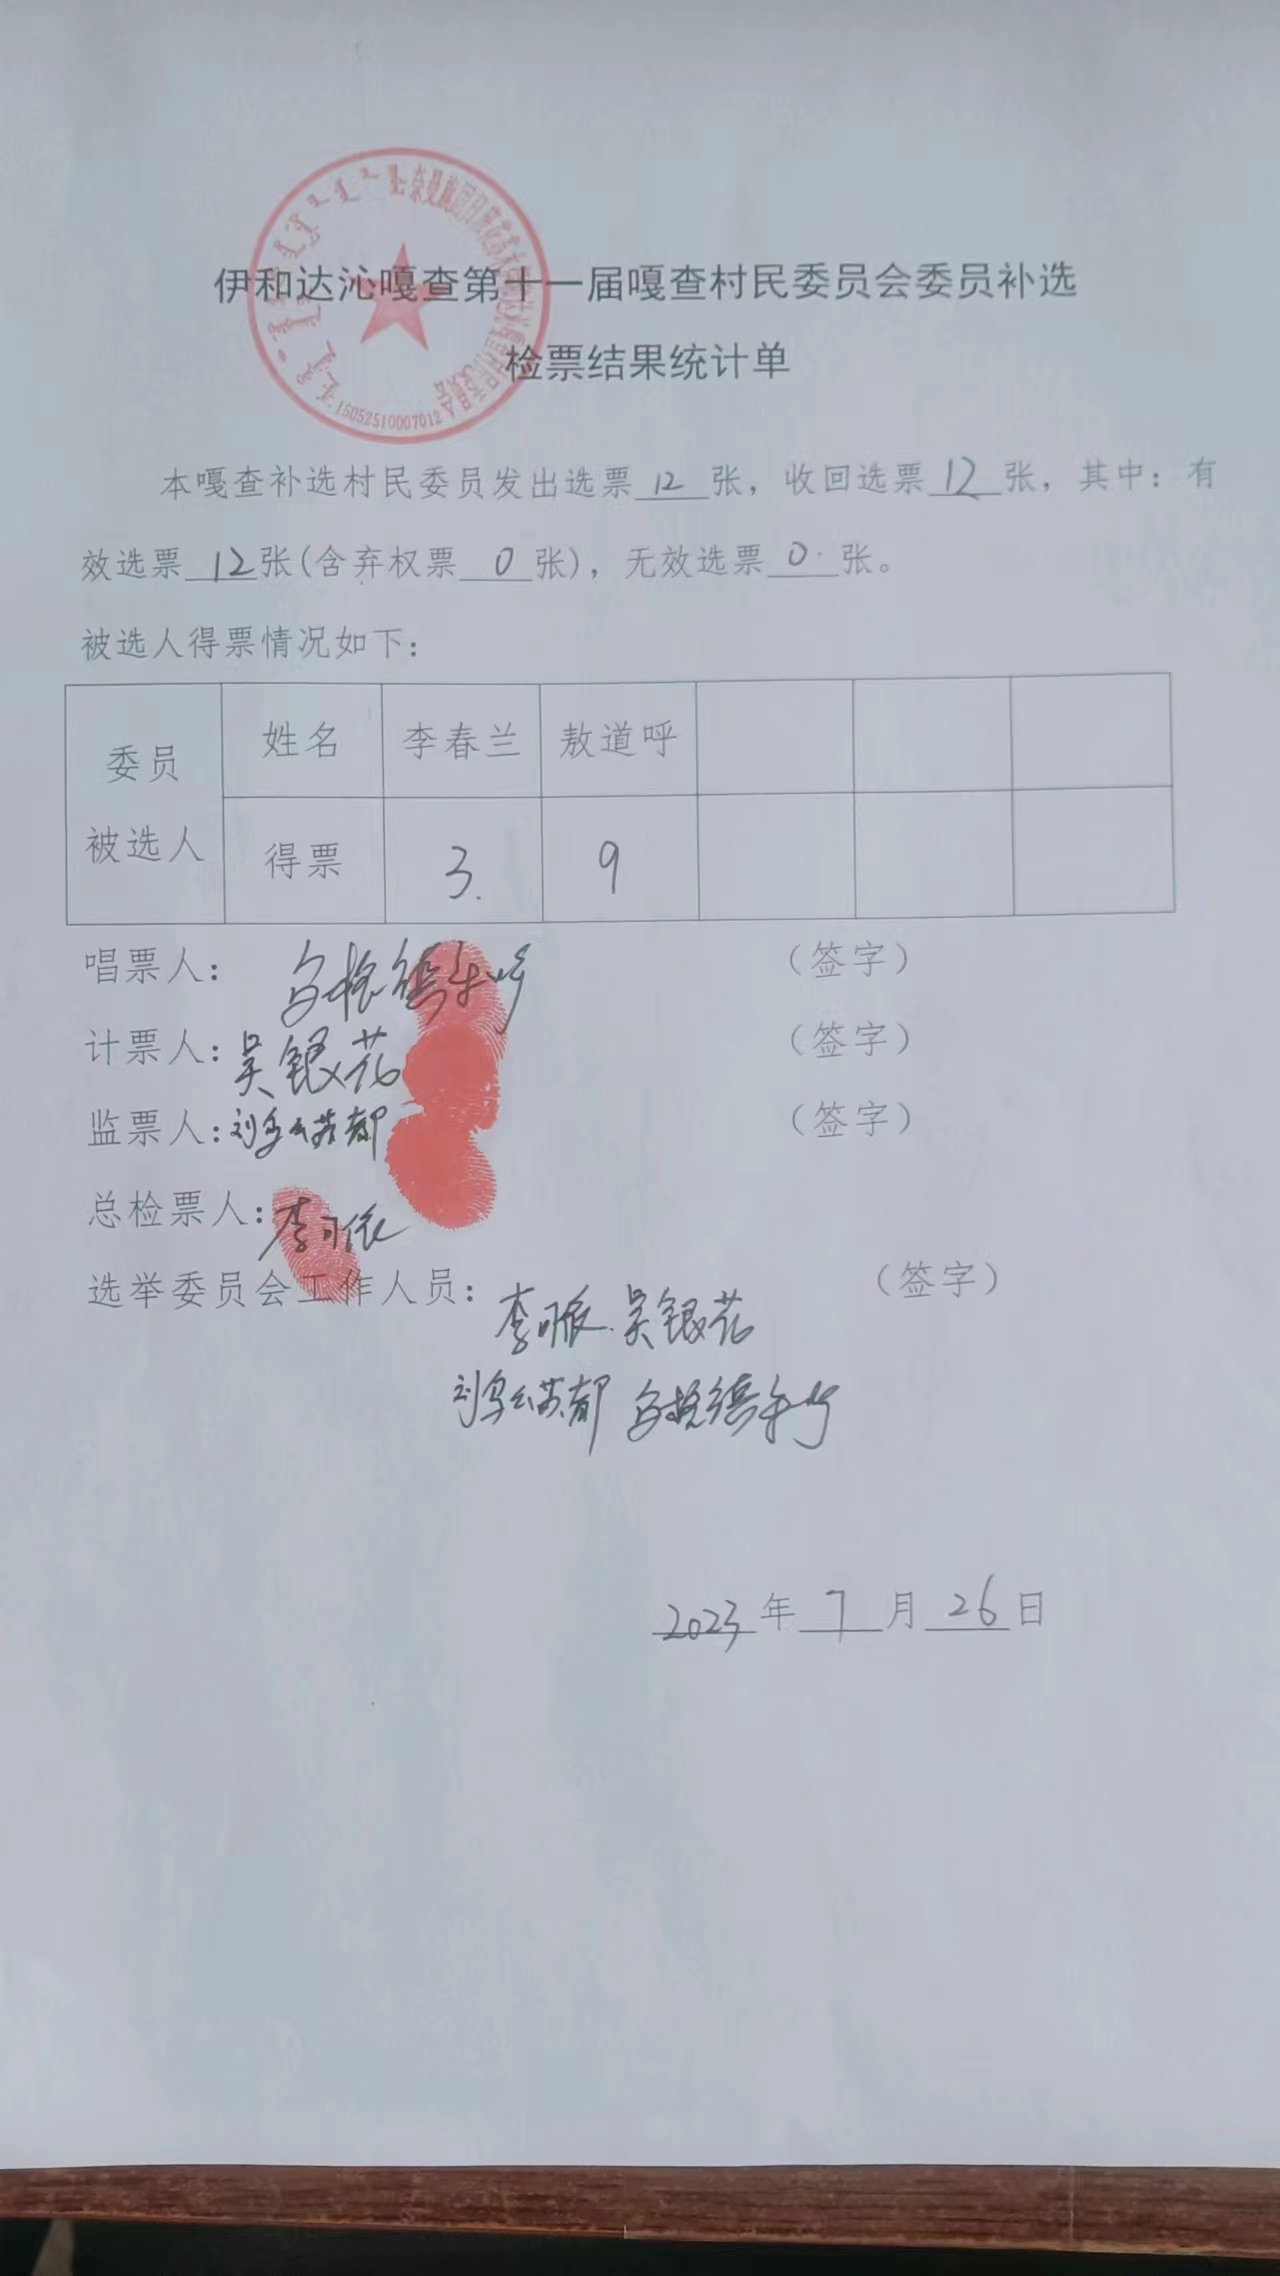 伊和达沁嘎查第十一届嘎查村民委员会委员补选
检票结果统计单
15052510007012
本嘎查补选村民委员发出选票 12 张，收回选票 12 张，其中：有
效选票 12 张(含弃权票 0 张)，无效选票 0 张。
被选人得票情况如下：
委员被选人 姓名 李春兰 敖道呼
得票 3. 9
唱票人： （签字）
计票人：吴银花 （签字）
监票人：刘 都 （签字）
总检票人：李
选举委员会工作人员： （签字）
李 吴银花
刘 都
2023 年 7 月 26 日